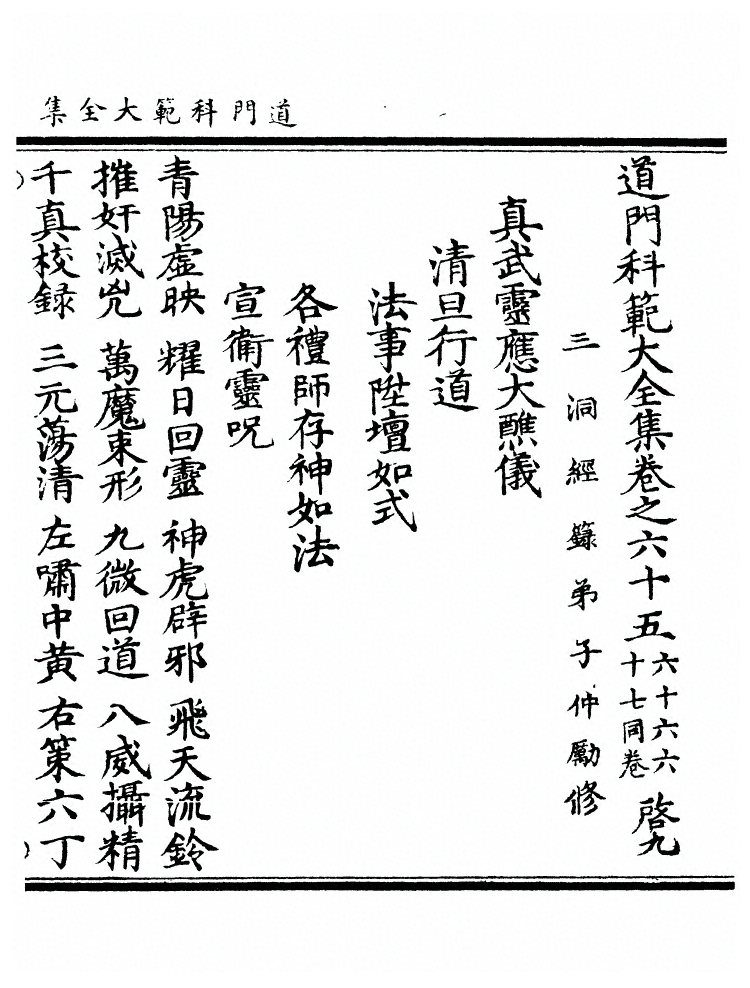 道門科範大全集
道門科範大全集卷之六十五 六十六六十七同卷 啓九
三洞經籙弟子仲勵修
真武靈應大醮儀
清旦行道
法事陞壇如式
各禮師存神如法
宣衛靈呪
青陽虛映 耀日回靈 神虎辟邪 飛天流鈴
摧奸滅兇 萬魔束形 九微回道 八威攝精
千真校録 三元蕩清 左嘯中黃 右策六丁